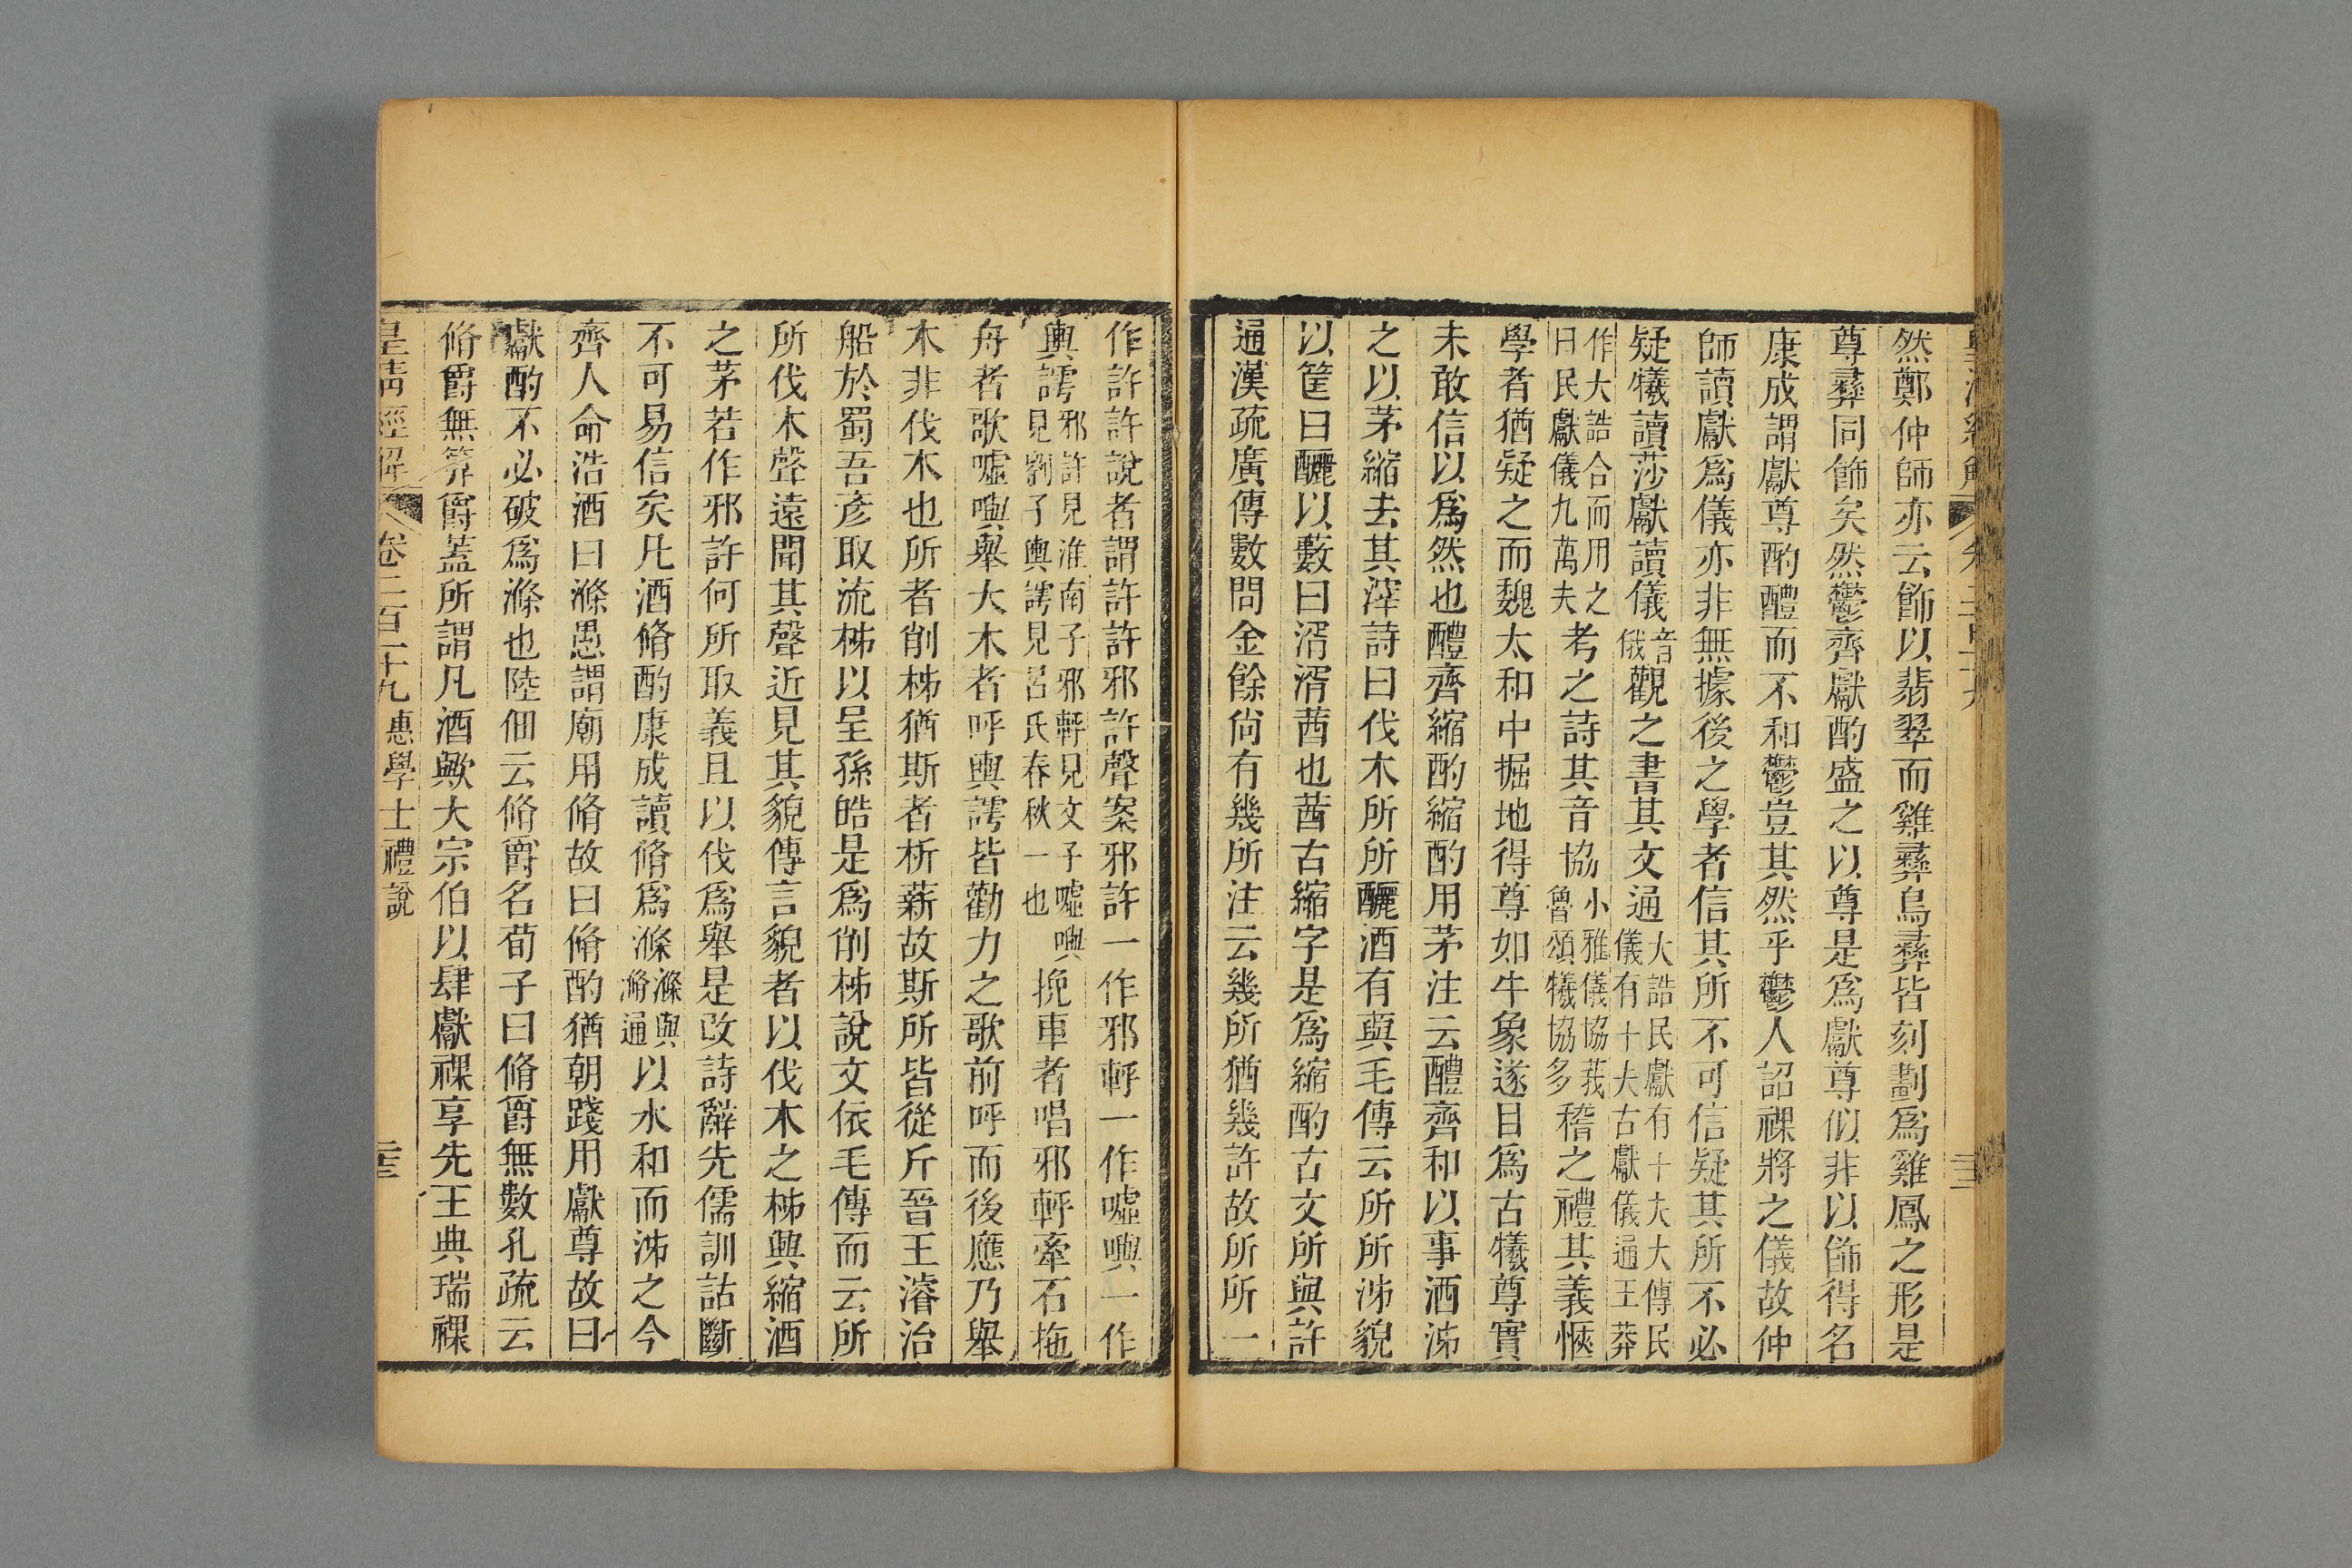 然鄭仲師亦云飾以翡翠而雞彝鳥彝皆刻劃爲雞鳳之形是
尊彝同飾矣然鬱齊獻酌盛之以尊是爲獻尊似非以飾得名
康成謂獻尊酌醴而不和鬱豈其然乎鬱人詔祼將之儀故仲
師讀獻爲儀亦非無據後之學者信其所不可信疑其所不必
疑犧讀莎獻讀儀音俄觀之書其文通大誥民獻有十夫大傳民儀有十夫古獻儀通王莽
作大誥合而用之曰民獻儀九萬夫考之詩其音協小雅儀協莪魯頌犧協多稽之禮其義愜
學者猶疑之而魏太和中掘地得尊如牛象遂目爲古犧尊實
未敢信以爲然也醴齊縮酌縮酌用茅注云醴齊和以事酒泲
之以茅縮去其滓詩曰伐木所所釃酒有藇毛傳云所所泲貌
以筐曰釃以藪曰湑湑莤也莤古縮字是爲縮酌古文所與許
通漢疏廣傳數問金餘尙有幾所注云幾所猶幾許故所所一
作許許說者謂許許邪許聲案邪許一作邪軤一作噓嶼一作
輿謣邪許見淮南子邪軤見文子噓嶼見劉子輿謣見呂氏春秋一也挽車者唱邪軤牽石拖
舟者歌噓嶼舉大木者呼輿謣皆勸力之歌前呼而後應乃舉
木非伐木也所者削柹猶斯者析薪故斯所皆從斤晉王濬治
船於蜀吾彥取流柹以呈孫皓是爲削柹說文依毛傳而云所
所伐木聲遠聞其聲近見其貌傳言貌者以伐木之柹興縮酒
之茅若作邪許何所取義且以伐爲舉是改詩辭先儒訓詁斷
不可易信矣凡酒脩酌康成讀脩爲滌滌與滫通以水和而泲之今
齊人命浩酒曰滌愚謂廟用脩故曰脩酌猶朝踐用獻尊故曰
獻酌不必破爲滌也陸佃云脩爵名荀子曰脩爵無數孔疏云
脩爵無筭爵蓋所謂凡酒歟大宗伯以肆獻祼享先王典瑞祼
皇淸經解 卷二百二十九 惠學士禮說